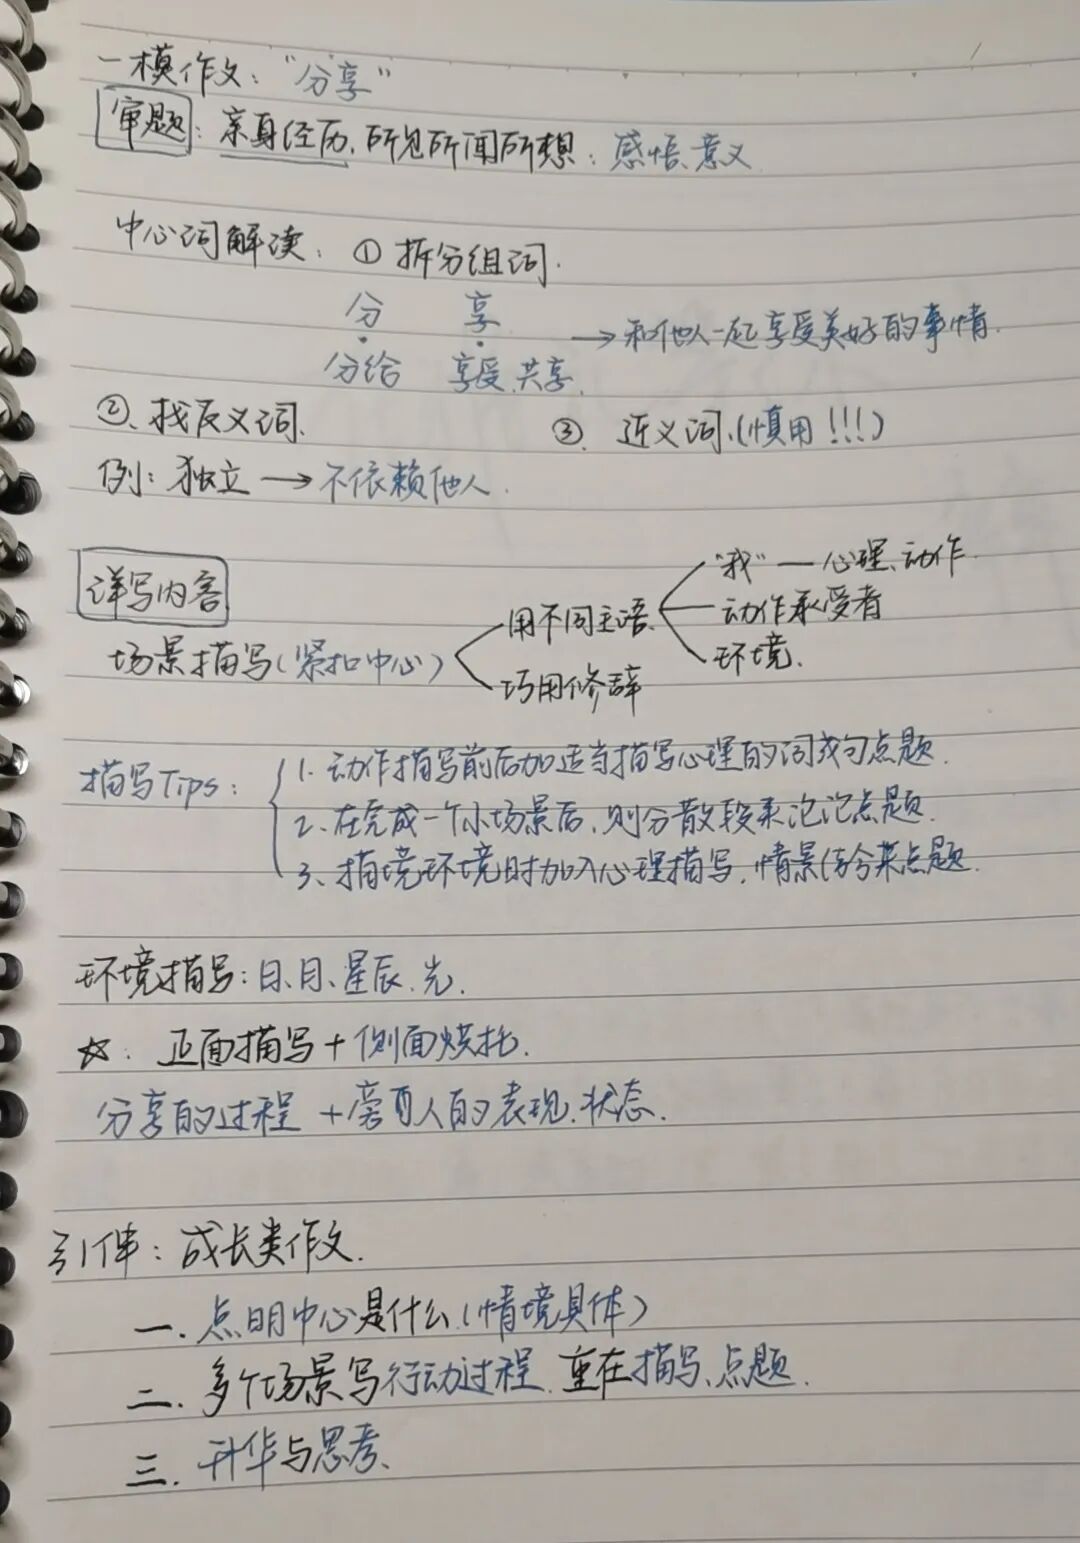 一模作文："分享"
审题：亲身经历、所见所闻所想：感悟、意义
中心词解读：① 拆分组词.
分 享
分给 享受、共享. → 和他人一起享受美好的事情.
②、找反义词. ③、近义词.(慎用!!!)
例：独立 → 不依赖他人.
详写内容
"我" — 心理、动作.
用不同主语. 动作承受者
场景描写(紧扣中心) 环境.
巧用修辞
描写Tips：
1. 动作描写前后加适当描写心理的词或句点题.
2、在完成一个小场景后、则分散段来泡泡点题.
3、描境环境时加入心理描写、情景结合来点题.
环境描写：日、月、星辰、光.
☆：正面描写+侧面烘托.
分享的过程 +旁百人的表现、状态.
引伸：成长类作文.
一. 点明中心是什么.(情境具体)
二. 多个场景写行动过程、重在描写、点题.
三. 升华与思考.